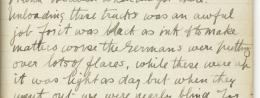 Unloading these trucks was an awful
job for it was black as ink & to make
matters worse the Germans were putting
over lots of flares, while these were up
it was light as day but when they
went out we were nearly blind for